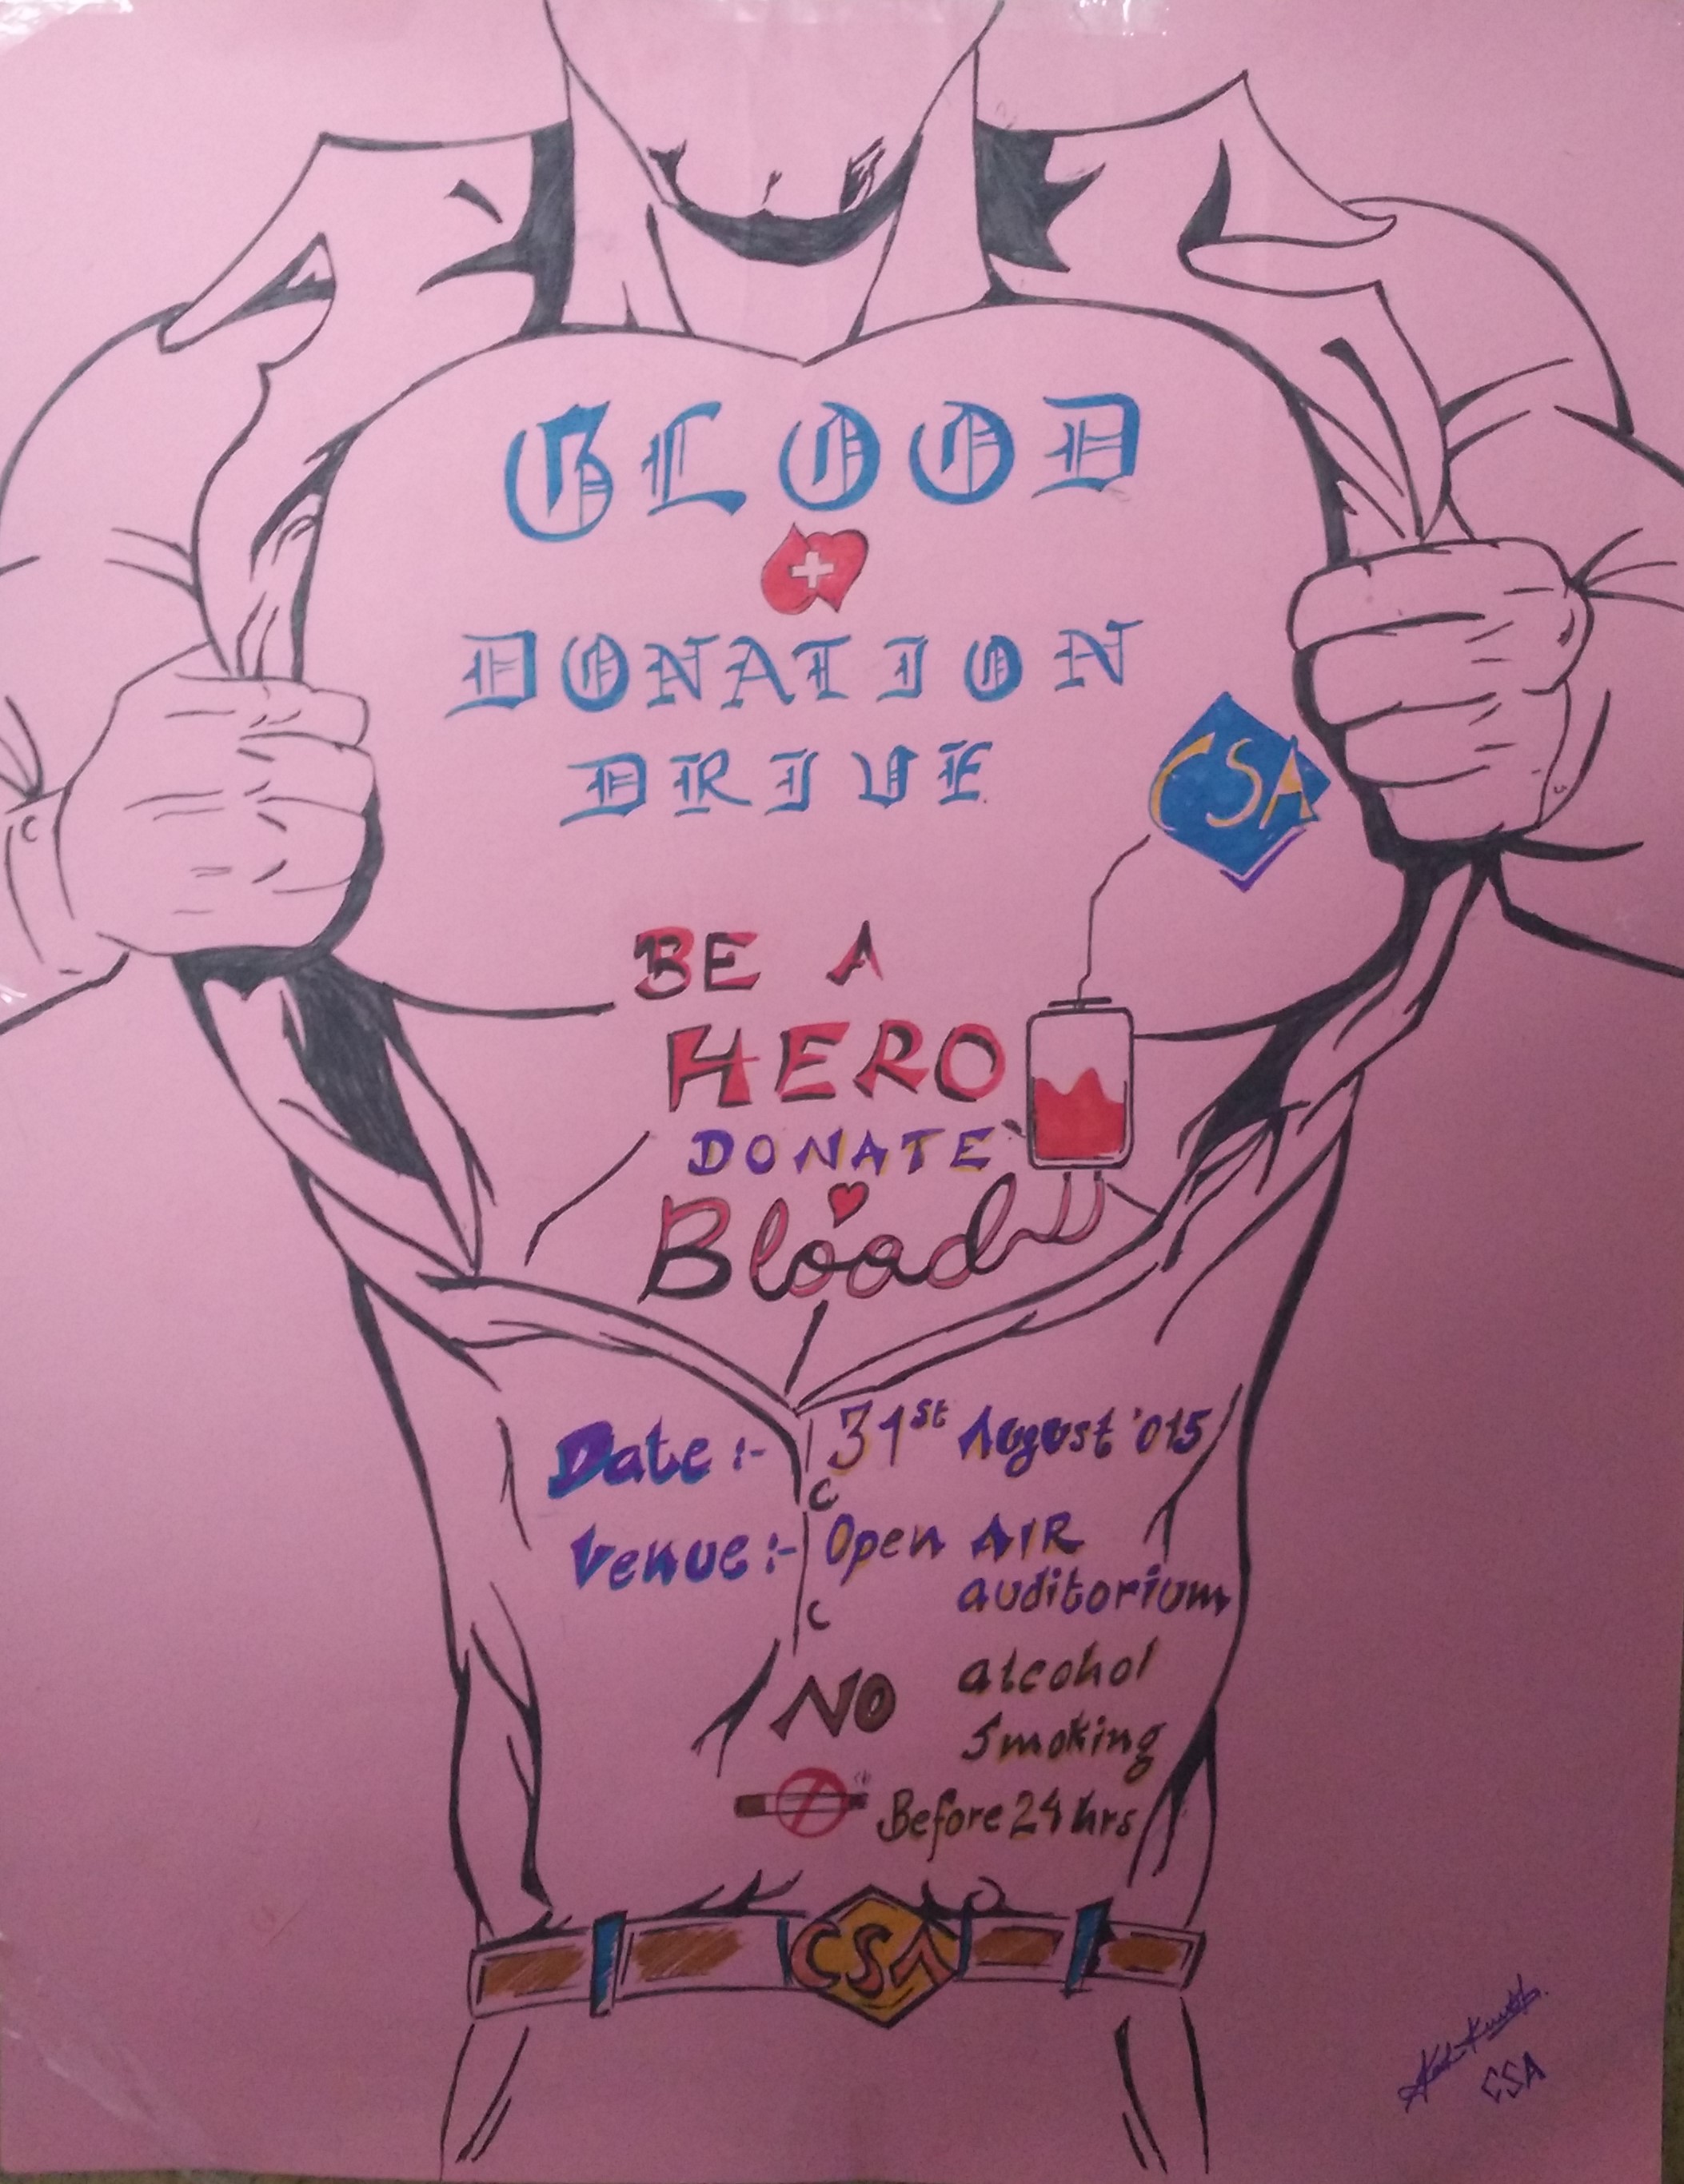 BLOOD
DONATION
DRIVE
CSA
BE A
HERO
DONATE
Blood
Date :- 31st August '015
Venue :- Open AIR
auditorium
NO alcohol
Smoking
Before 24 hrs
CSA
CSA